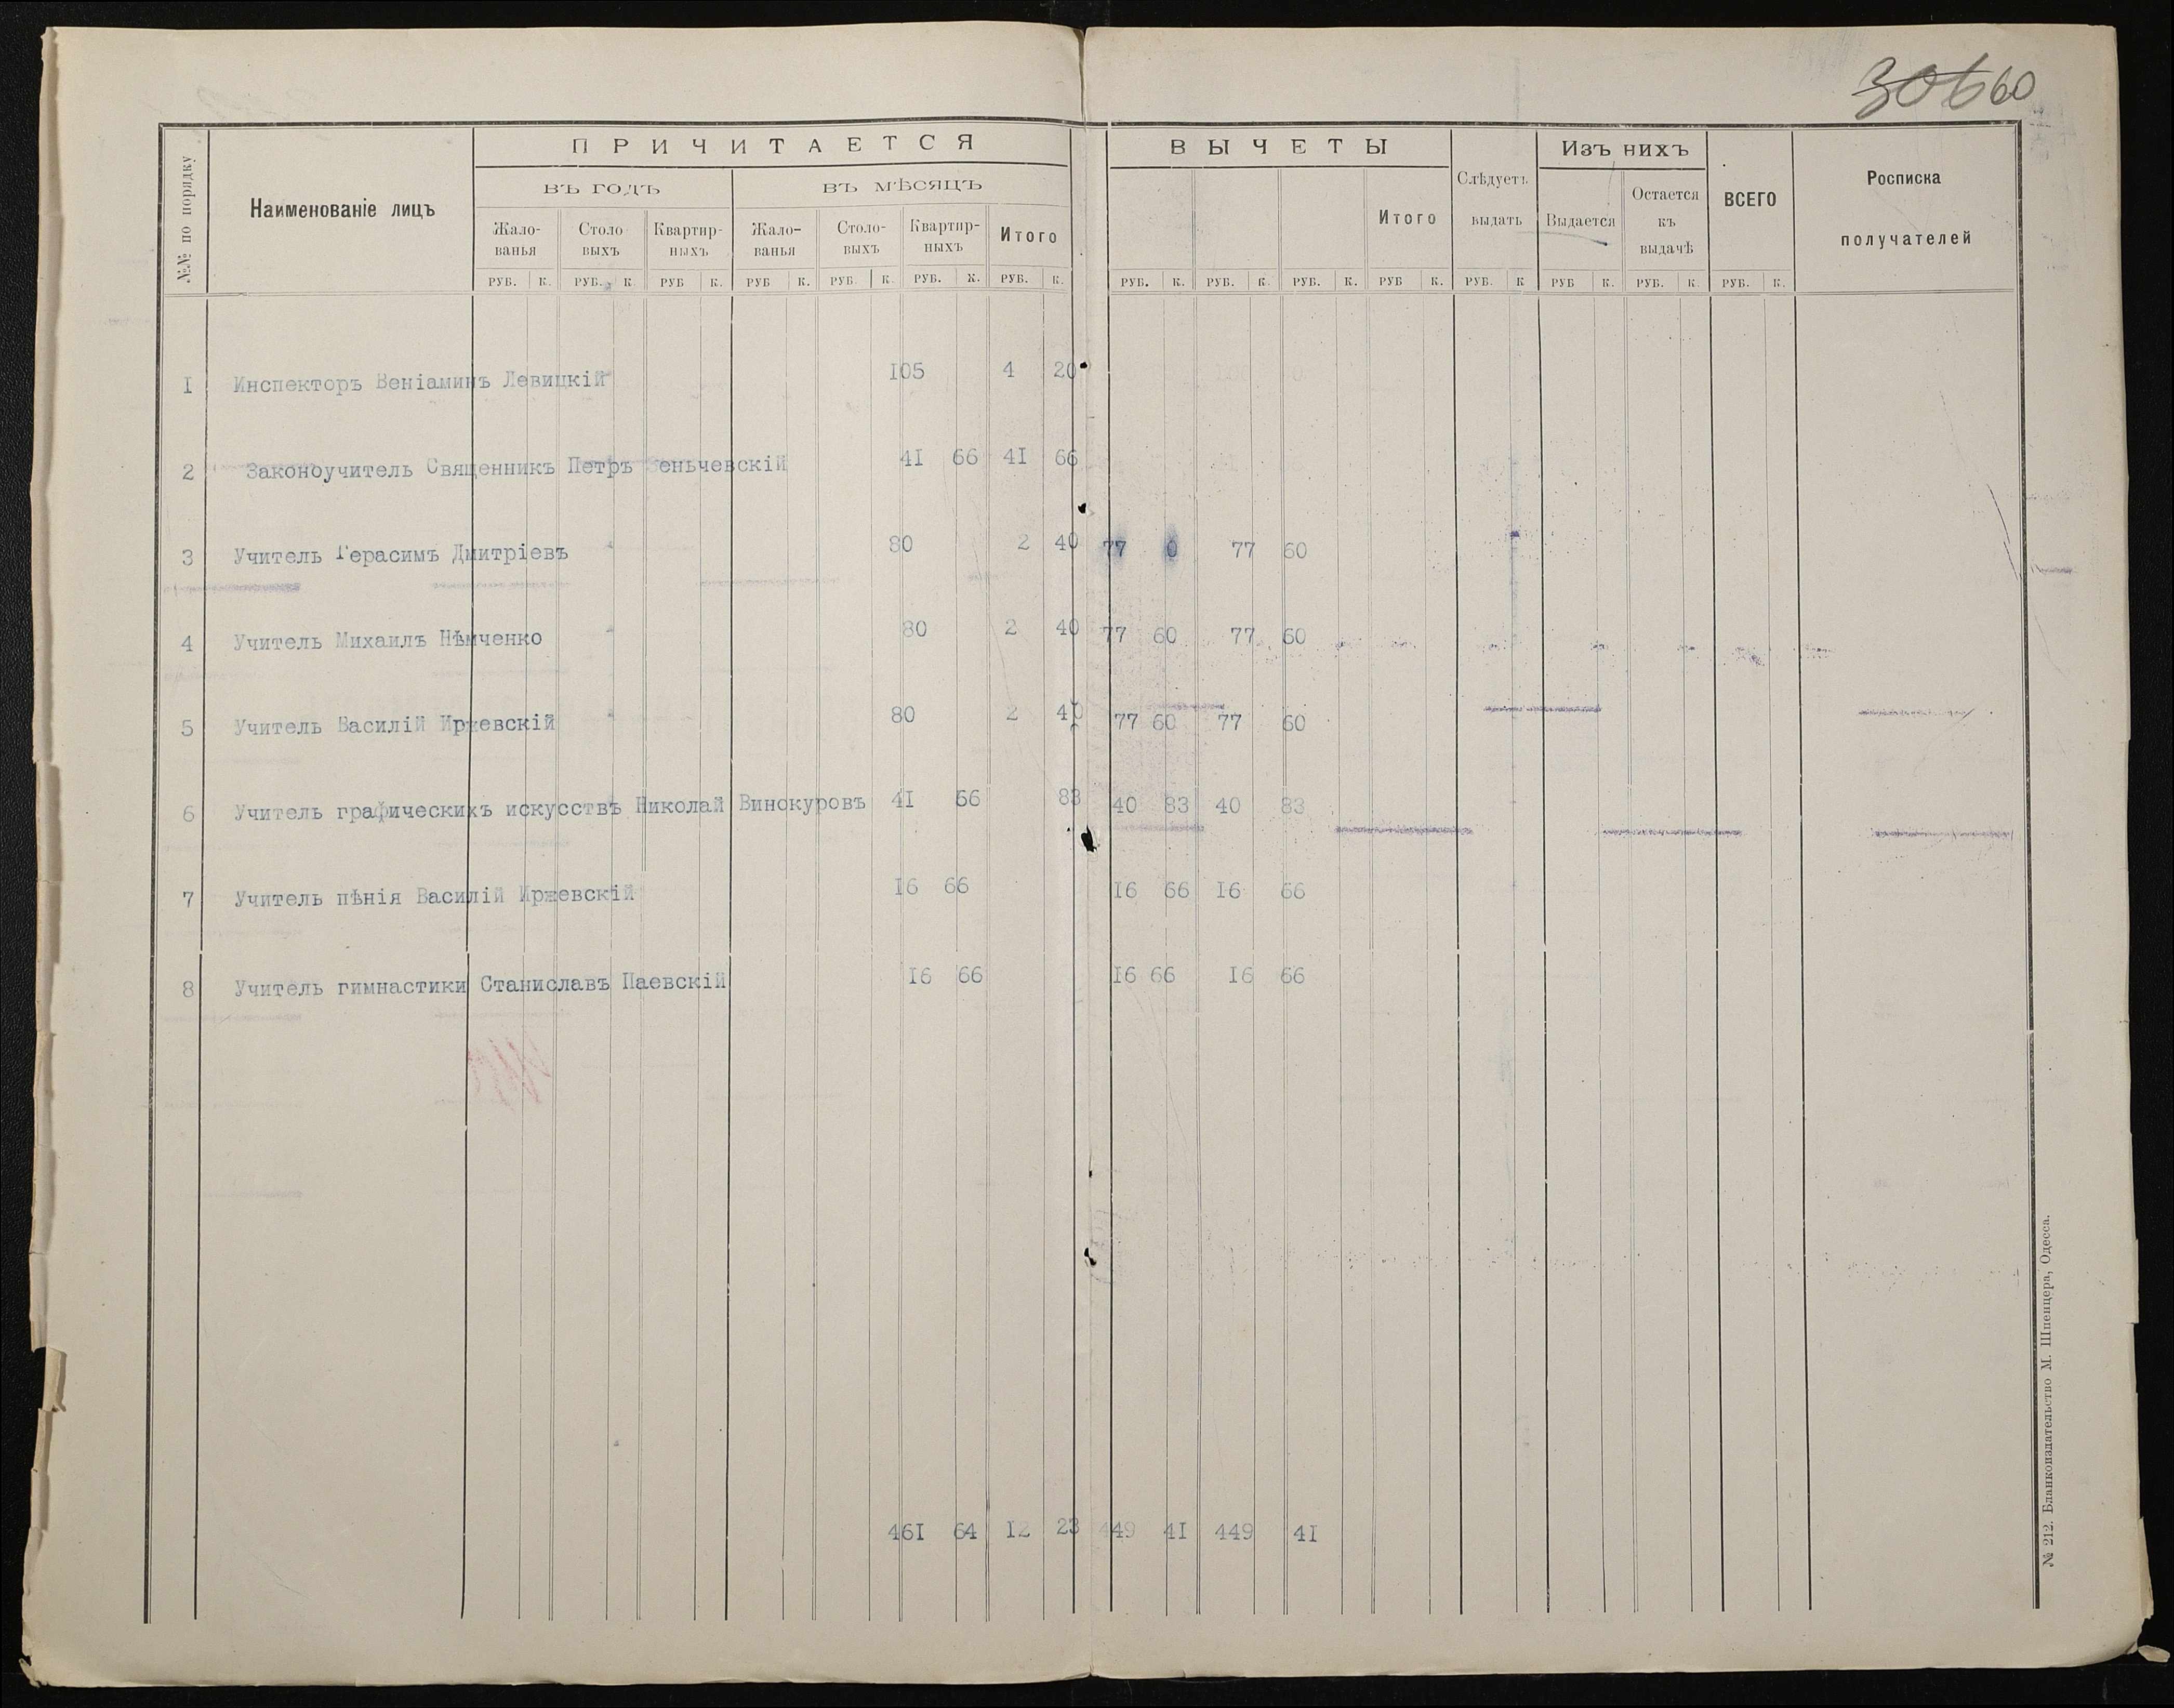 306 60
№№ по порядку
Наименованіе лицъ
ПРИЧИТАЕТСЯ
ВЪ ГОДЪ
ВЪ МѢСЯЦЪ
Жало-
ванья
Столо
выхъ
Квартир-
ныхъ
Жало-
ванья
Столо-
выхъ
Квартир-
ныхъ
Итого
ВЫЧЕТЫ
Итого
Слѣдуетъ
выдать
Изъ нихъ
Выдается
Остается
къ
выдачѣ
ВСЕГО
Росписка
получателей
РУБ. К. РУБ. К. РУБ К. РУБ К. РУБ. К. РУБ. К. РУБ. К. РУБ. К. РУБ. К. РУБ. К. РУБ К. РУБ. К РУБ К. РУБ. К. РУБ. К.
1 Инспекторъ Веніаминъ Левицкій 105 4 20
2 Законоучитель Священникъ Петръ еньчевскій 41 66 41 66
3 Учитель Герасимъ Дмитріевъ 80 2 40 77 0 77 60
4 Учитель Михаилъ Нѣмченко 80 2 40 77 60 77 60
5 Учитель Василій Иржевскій 80 2 40 77 60 77 60
6 Учитель графическихъ искусствъ Николай Винокуровъ 41 66 83 40 83 40 83
7 Учитель пѣнія Василій Иржевскій 16 66 16 66 16 66
8 Учитель гимнастики Станиславъ Паевскій 16 66 16 66 16 66
461 64 12 23 449 41 449 41
№ 212. Бланкоиздательство М. Шпенцера, Одесса.